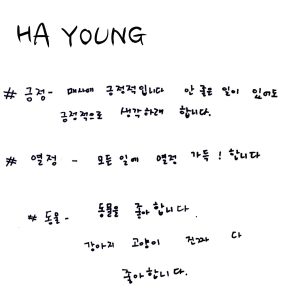 HA YOUNG
# 긍정 - 매사에 긍정적입니다 안 좋은 일이 있어도
긍정적으로 생각하래 합니다.
# 열정 - 모든 일에 열정 가득! 합니다
# 동물 - 동물을 좋아합니다.
강아지 고양이 진짜 다
좋아합니다.